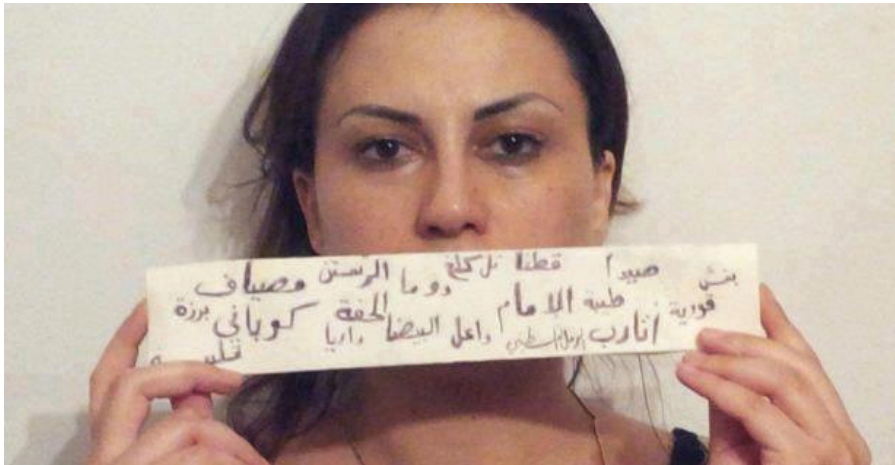 بنش صيدا قطنا تل كلخ دوما الرستن مصياف
قورية طيبة الامام الحفة كوباني برزة
أتارب داعل البيضا داريا